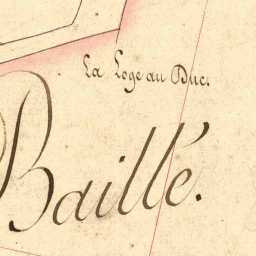 La Loge au Duc.
Baillé.